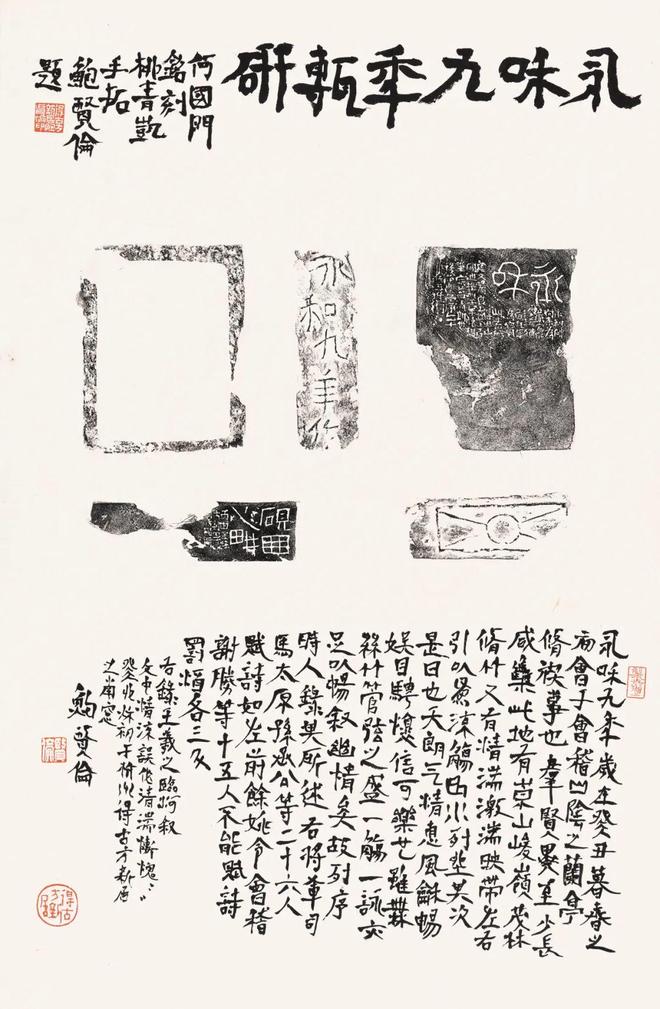 永咊九秊甎研
何國門
銘刻
桃青凱
手拓
鮑賢倫
題
永咊
永和九年作
硯田
永咊九年歲在癸丑暮春之
初會于會稽山陰之蘭亭
脩禊事也羣賢畢至少長
咸集此地有崇山峻嶺茂林
脩竹又有清湍激湍映帶左右
引以爲流觴曲水列坐其次
是日也天朗气清惠風龢暢
娱目騁懷信可樂也雖無
絲竹管弦之盛一觴一詠亦
足以暢叙幽情矣故列序
時人錄其所述右將軍司
馬太原孫承公等二十六人
賦詩如左前餘姚令會稽
謝勝等十五人不能賦詩
罰酒各三斗
右錄王羲之臨河叙
文中清流誤作清湍慚愧々々
癸卯秋初于杭州得古方新居
之南窓
鮑賢倫